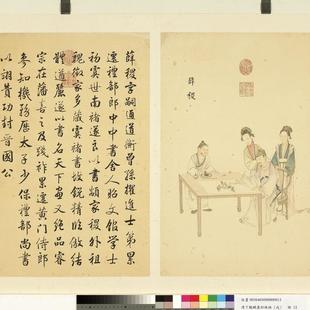 薛稷
薛稷字嗣通道衡曾孫擢進士第累
遷禮部郎中中書舍人昭文館學士
初虞世南褚遂良以書顓家稷外祖
魏徵家多藏虞褚書故銳精臨倣結
體遒麗遂以書名天下畫又絕品睿
宗在藩喜之及踐祚累遷黃門侍郎
參知機務歷太子少保禮部尚書
以翊贊功封晉國公